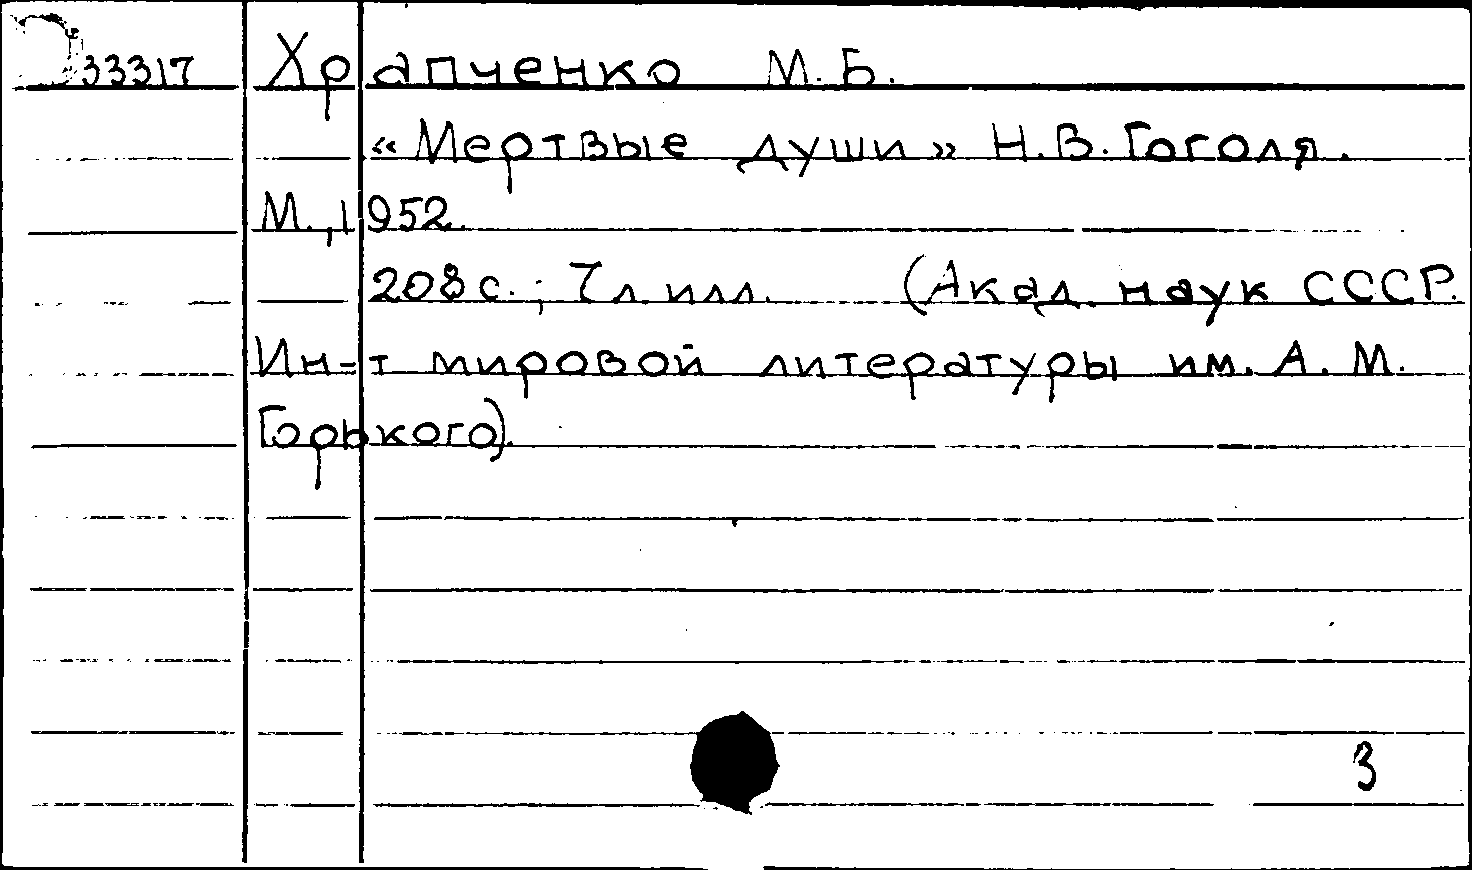 33317 Храпченко М.Б.
«Мертвые души» Н.В.Гоголя.
М., 1952.
208 с.; 7 л. илл. (Акад. наук СССР.
Ин-т мировой литературы им. А. М.
Горького).
3